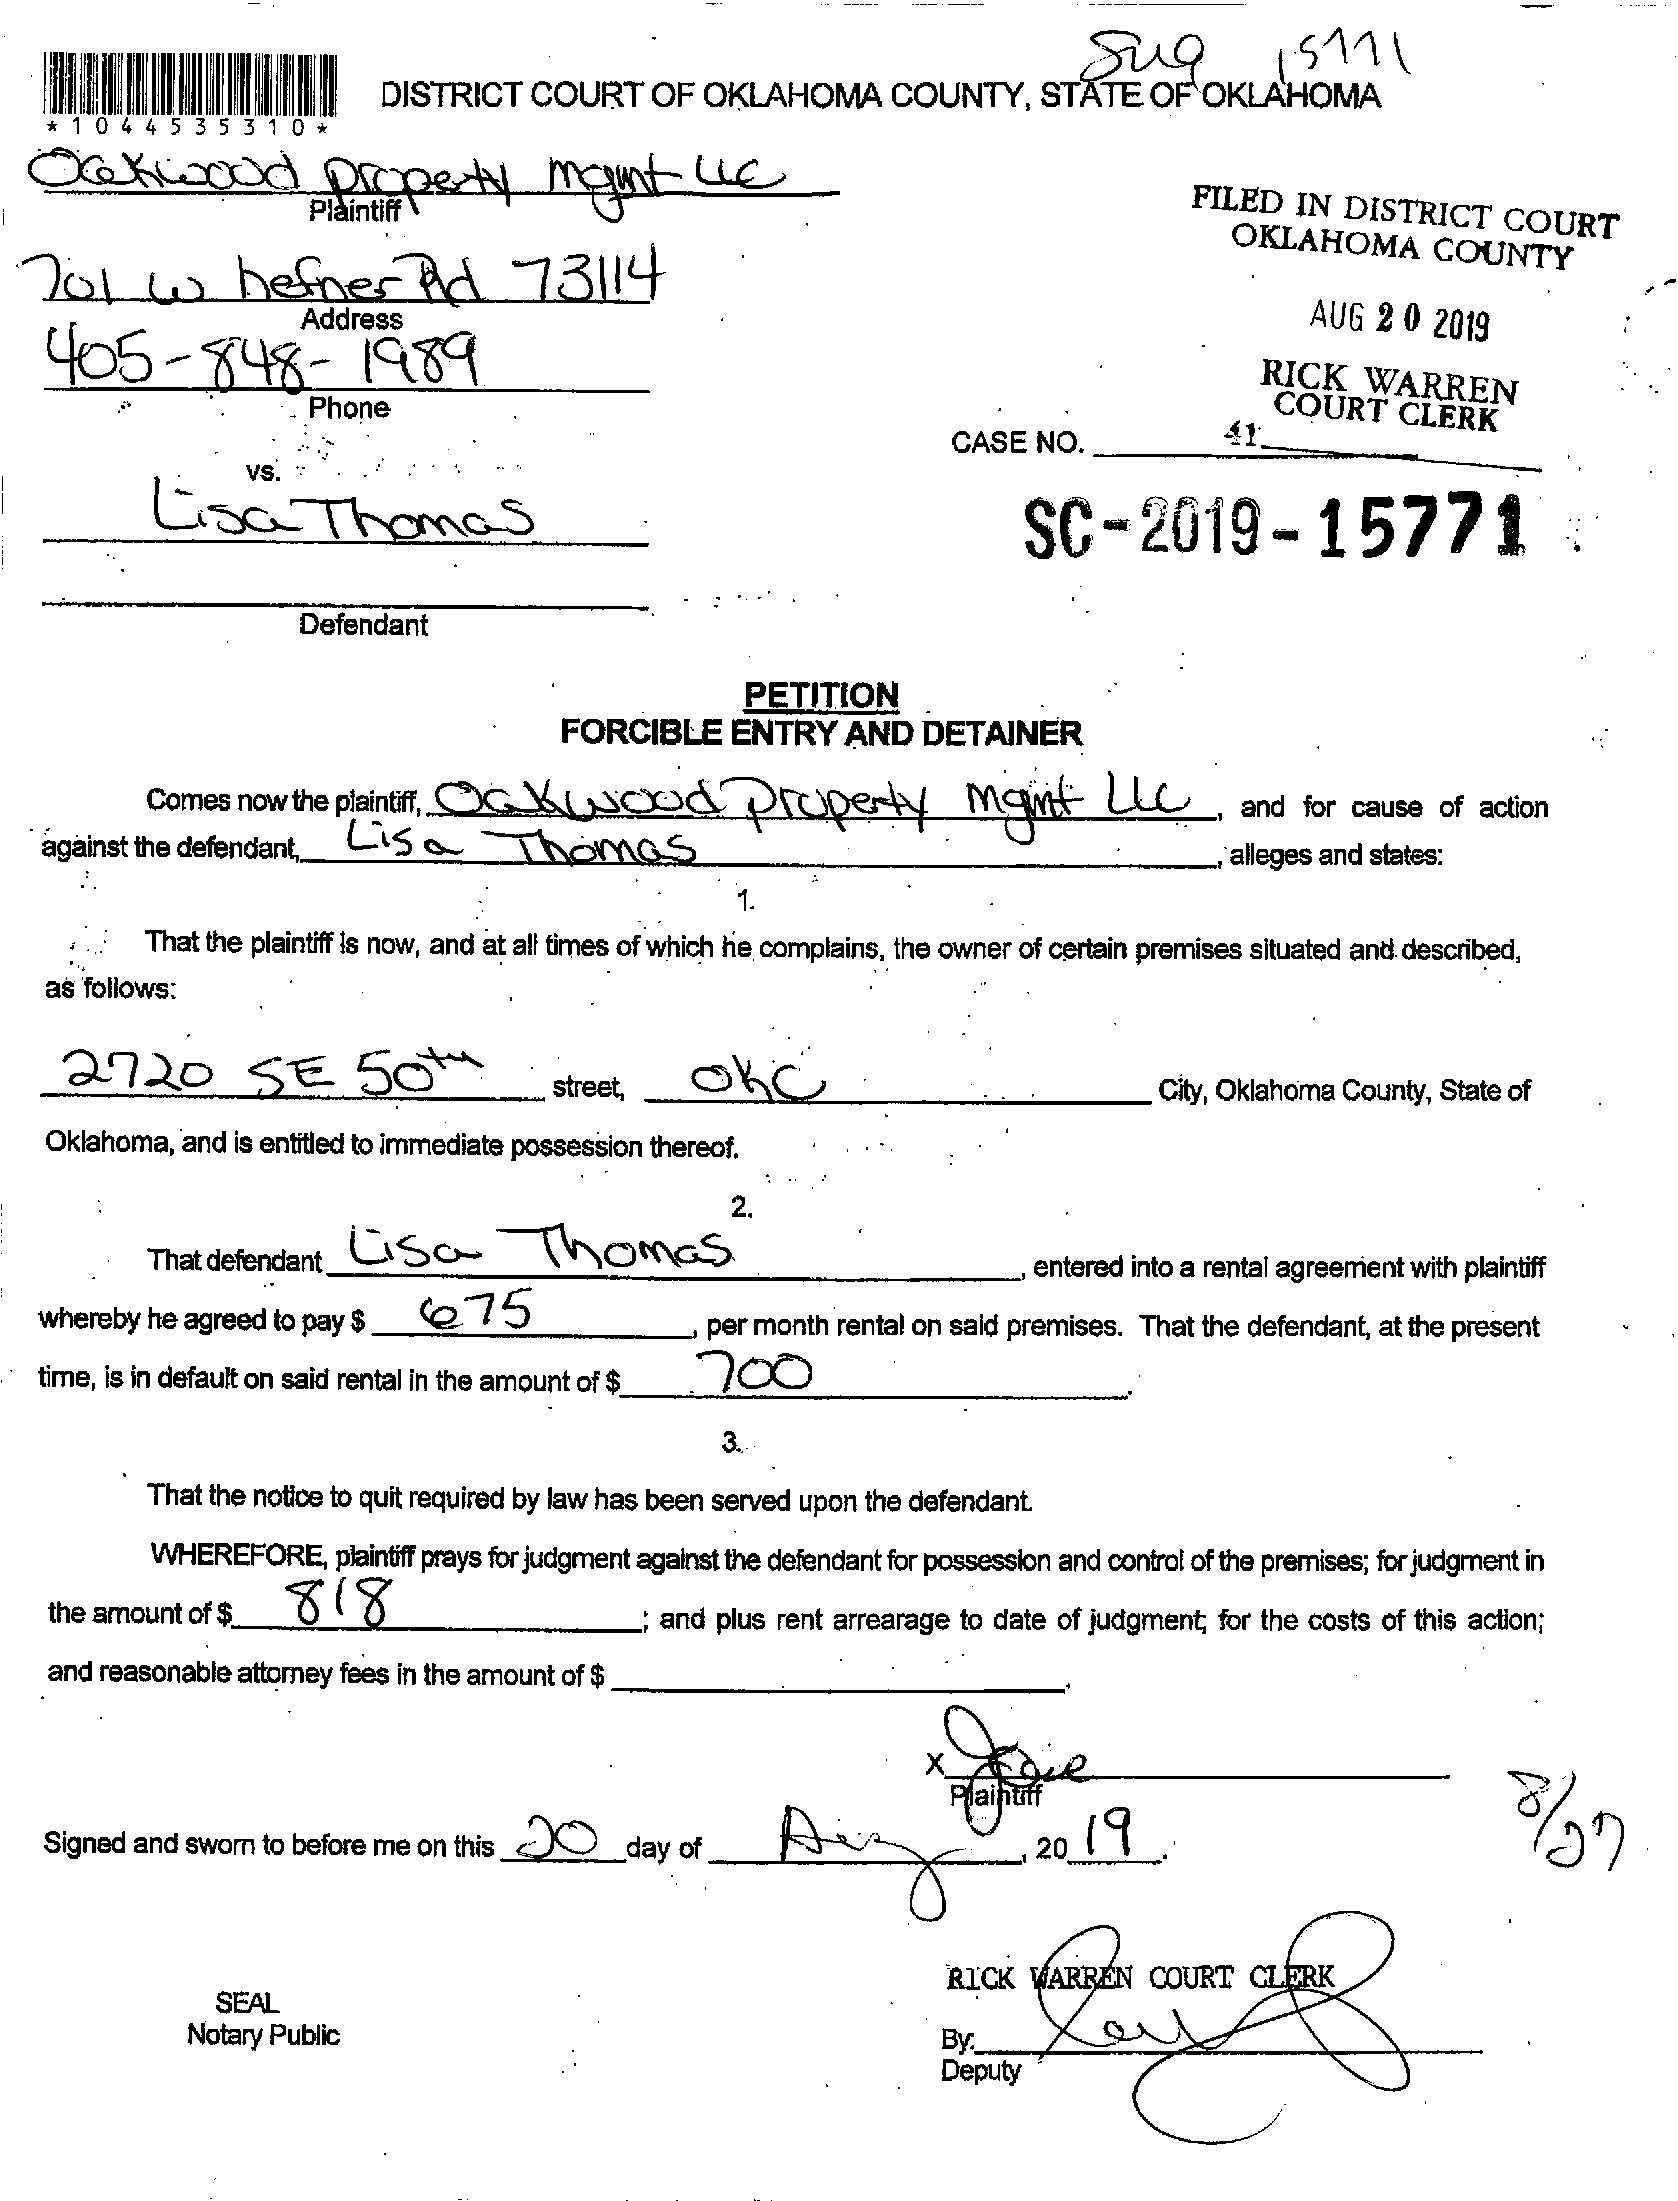 15771
*1044535310*
DISTRICT COURT OF OKLAHOMA COUNTY, STATE OF OKLAHOMA
Oakwood property mgmt LLC
Plaintiff
FILED IN DISTRICT COURT
OKLAHOMA COUNTY
701 W hefner Rd 73114
Address
AUG 20 2019
405-848-1989
Phone
RICK WARREN
COURT CLERK
CASE NO. 41
vs.
Lisa Thomas
SC-2019-15771
Defendant
PETITION
FORCIBLE ENTRY AND DETAINER
Comes now the plaintiff, Oakwood Property Mgmt LLC, and for cause of action
against the defendant, Lisa Thomas, alleges and states:
1.
That the plaintiff is now, and at all times of which he complains, the owner of certain premises situated and described,
as follows:
2720 SE 50th street, OKC City, Oklahoma County, State of
Oklahoma, and is entitled to immediate possession thereof.
2.
That defendant Lisa Thomas, entered into a rental agreement with plaintiff
whereby he agreed to pay $ 675, per month rental on said premises. That the defendant, at the present
time, is in default on said rental in the amount of $ 700.
3.
That the notice to quit required by law has been served upon the defendant.
WHEREFORE, plaintiff prays for judgment against the defendant for possession and control of the premises; for judgment in
the amount of $ 818; and plus rent arrearage to date of judgment; for the costs of this action;
and reasonable attorney fees in the amount of $.
X
Plaintiff
8/27
Signed and sworn to before me on this 20 day of Aug, 2019.
RICK WARREN COURT CLERK
SEAL
Notary Public
By:
Deputy